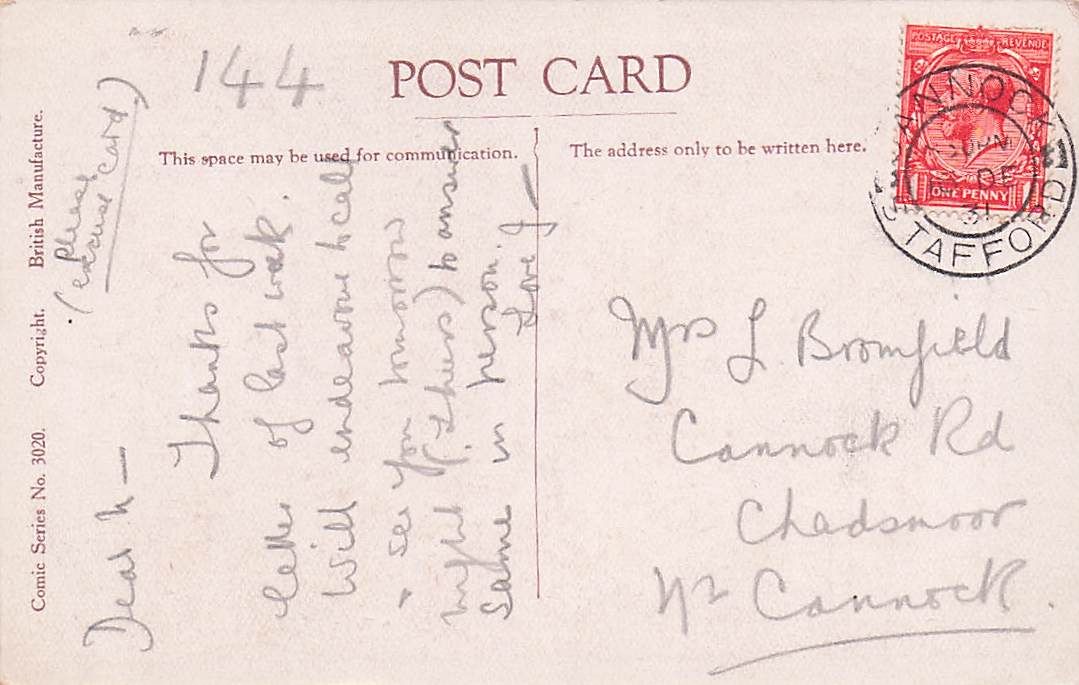 144
POST CARD
This space may be used for communication.
The address only to be written here.
Comic Series No. 3020. Copyright. British Manufacture.
POSTAGE REVENUE
ONE PENNY
CANNOCK
STAFFORD
PM
DE
31
(Please
excuse card)
Dear M —
Thanks for
letter of last week.
Will endeavour to call
& see you tomorrow
night (Thurs) to answer
same in person.
Love. J
Mrs L Bromfield
Cannock Rd
Chadsmoor
Nr Cannock.